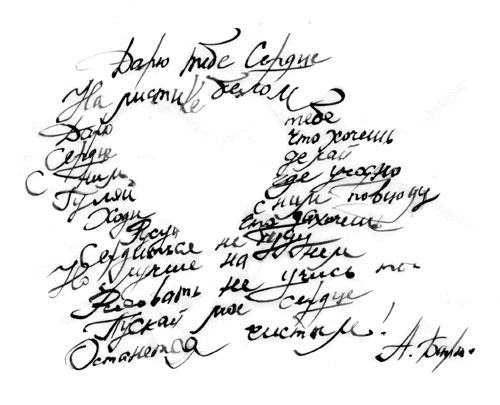 Дарю тебе Сердце
На листике белом
Дарю тебе
Сердце что хочешь
С Ним делай
Гуляй где угодно
Ходи с ним повсюду
Рисуй что захочешь
Сердиться не буду
Но лучше на Нем
Рисовать не учись ты
Пускай мое сердце
Останется чистым!
А. Барто.